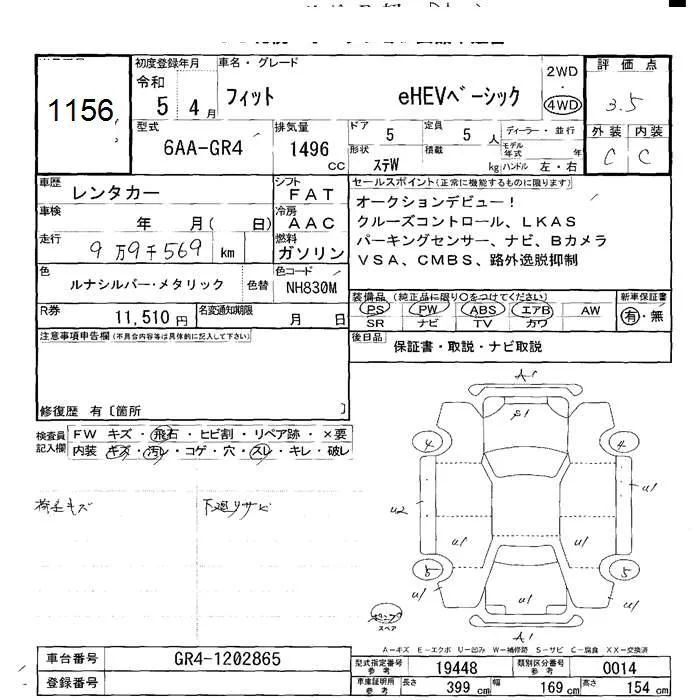 1156
初度登録年月 車名・グレード 評価点
令和 5年 4月
フィット eHEVベーシック
2WD・4WD
3.5
外装 内装
C C
型式 排気量 ドア 定員 ディーラー・並行
6AA-GR4 1496 CC 5 5人
形状 積載 モデル年式 年
ステW kg ハンドル 左・右
車歴 レンタカー
シフト FAT
車検 年 月( 日)
冷房 AAC
走行 9万9千569 km
燃料 ガソリン
色 ルナシルバー・メタリック 色替
色コード NH830M
R券 11,510円 名変通知期限 月 日
セールスポイント(正常に機能するものに限ります)
オークションデビュー!
クルーズコントロール、LKAS
パーキングセンサー、ナビ、Bカメラ
VSA、CMBS、路外逸脱抑制
装備品(純正品に限り○をつけてください) 新車保証書
PS PW ABS エアB AW 有・無
SR ナビ TV カワ
後日品 保証書・取説・ナビ取説
注意事項申告欄(不具合内容等は具体的に記入して下さい)
修復歴 有〔箇所 〕
検査員記入欄
FW キズ・飛石・ヒビ割・リペア跡・×要
内装 キズ・汚レ・コゲ・穴・スレ・キレ・破レ
荷室キズ 下廻りサビ
A1
S1
4 4
U1
U2
U1 U1
5 5
U1 U1
U1
A1
スペア
A-キズ E-エクボ U-凹み W-補修跡 S-サビ C-腐食 XX-交換済
車台番号 GR4-1202865
登録番号
型式指定番号 参考 19448 類別区分番号 参考 0014
車庫証明用 参考 長さ 399 cm 幅 169 cm 高さ 154 cm